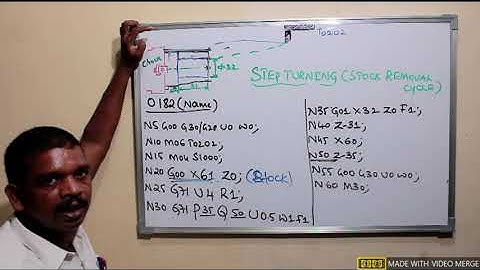 T0202
Chuck
ϕ32
STEP TURNING (STOCK REMOVAL
CYCLE)
O182 (Name)
N5 G00 G30/G28 U0 W0;
N10 M06 T0202;
N15 M04 S1000;
N20 G00 X61 Z0; (Stock)
N25 G71 U4 R1;
N30 G71 P35 Q50 U05 W1 F1
N35 G01 X32 Z0 F1;
N40 Z-31;
N45 X60;
N50 Z-35;
N55 G00 G30 U0 W0;
N60 M30;
MADE WITH VIDEO MERGE